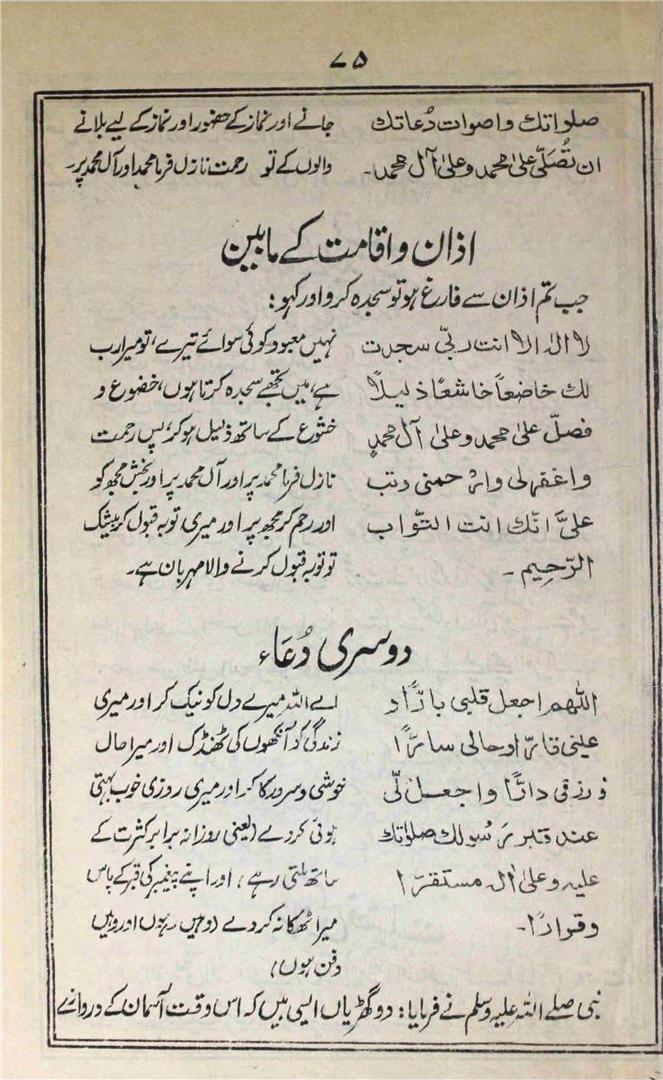 ۷۵
صلواتك واصوات دُعاتك جانے اور نماز کے حضور اور نماز کے لیے بلانے
ان تُصَلّی علیٰ محمد وعلیٰ آل محمد۔ والوں کے تو رحمت نازل فرما محمد اور آل محمد پر۔
اذان و اقامت کے مابین
جب تم اذان سے فارغ ہو تو سجدہ کرو اور کہو :
لا الٰہ الا انت ربّی سجدت نہیں معبود کوئی سوائے تیرے، تو میرا رب
لك خاضعاً خاشعاً ذلیلًا ہے، میں تجھے سجدہ کرتا ہوں، خضوع و
فصلّ علیٰ محمد وعلیٰ آل محمدٍ خشوع کے ساتھ ذلیل ہو کر، پس رحمت
واغفرلی وارحمنی وتب نازل فرما محمد پر اور آل محمد پر اور بخش مجھ کو
علیَّ انّك انت التّواب اور رحم کر مجھ پر اور میری توبہ قبول کر بیشک
الرّحیم۔ تو توبہ قبول کرنے والا مہربان ہے۔
دوسری دُعَاء
اللّٰھم اجعل قلبی بارًّا و اے اللہ میرے دل کو نیک کر اور میری
عینی قارّۃ وحالی سارًّا زندگی کو آنکھوں کی ٹھنڈک اور میرا حال
ورزقی دارًّا واجعل لّی خوشی و سرور کا کر اور میری روزی خوب بہتی
عند قبر رسولك صلوٰتك ہوئی کردے (یعنی روزانہ برابر کثرت کے
علیہ وعلیٰ اٰلہ مستقرًّا ساتھ ملتی رہے، اور اپنے پیغمبر کی قبر کے پاس
وقرارًا۔ میرا ٹھکانہ کردے (وہیں رہوں اور وہیں
دفن ہوں)
نبی صلے اللہ علیہ وسلم نے فرمایا : دو گھڑیاں ایسی ہیں کہ اس وقت آسمان کے دروازے